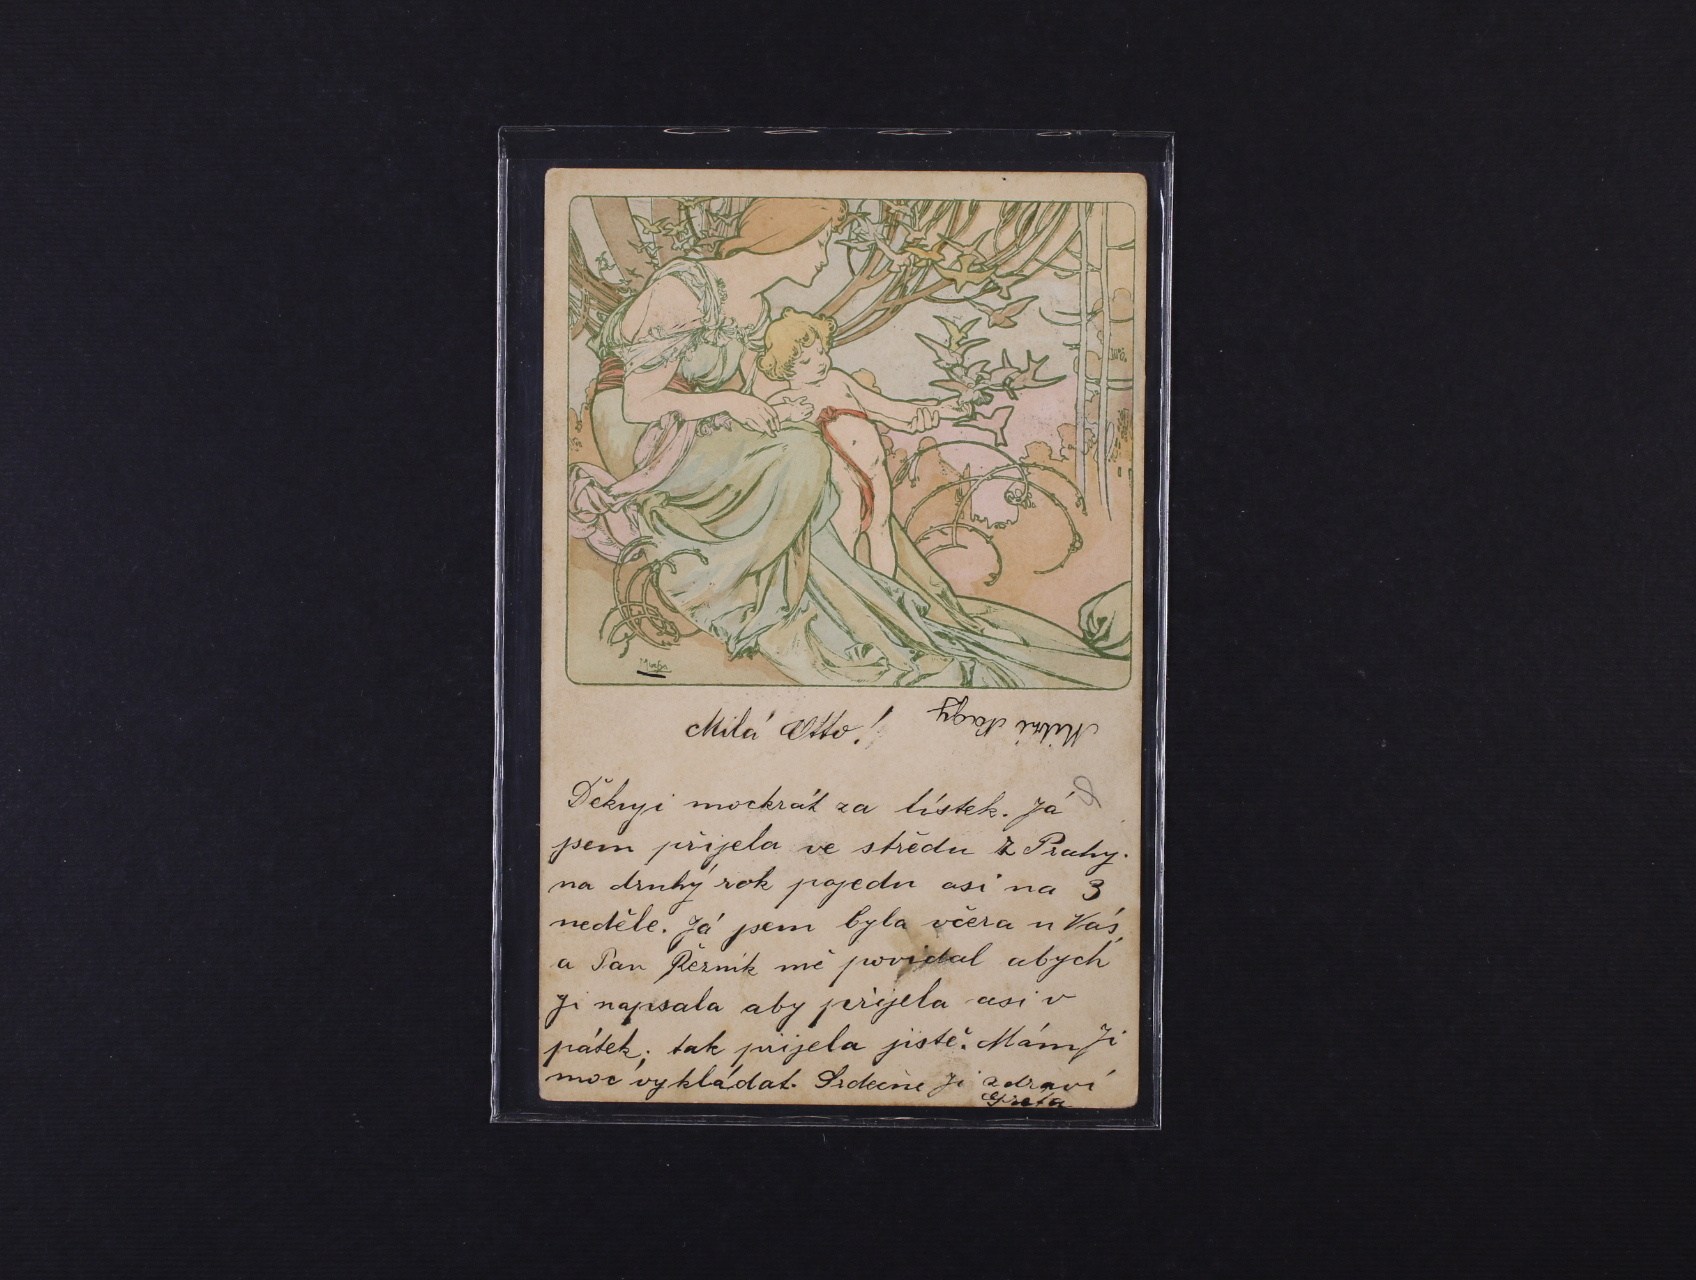 Mucha
Milá Otto!
Děkuji mockrát za lístek. Já
jsem přijela ve středu z Prahy.
na druhý rok pojedu asi na 3
neděle. Já jsem byla včera u Vás
a Pan Řezník mě povidal abych
Ji napsala aby přijela asi v
pátek; tak prijela jistě. Mám Ji
moc vykládat. Srdečne Ji zdraví
Greta